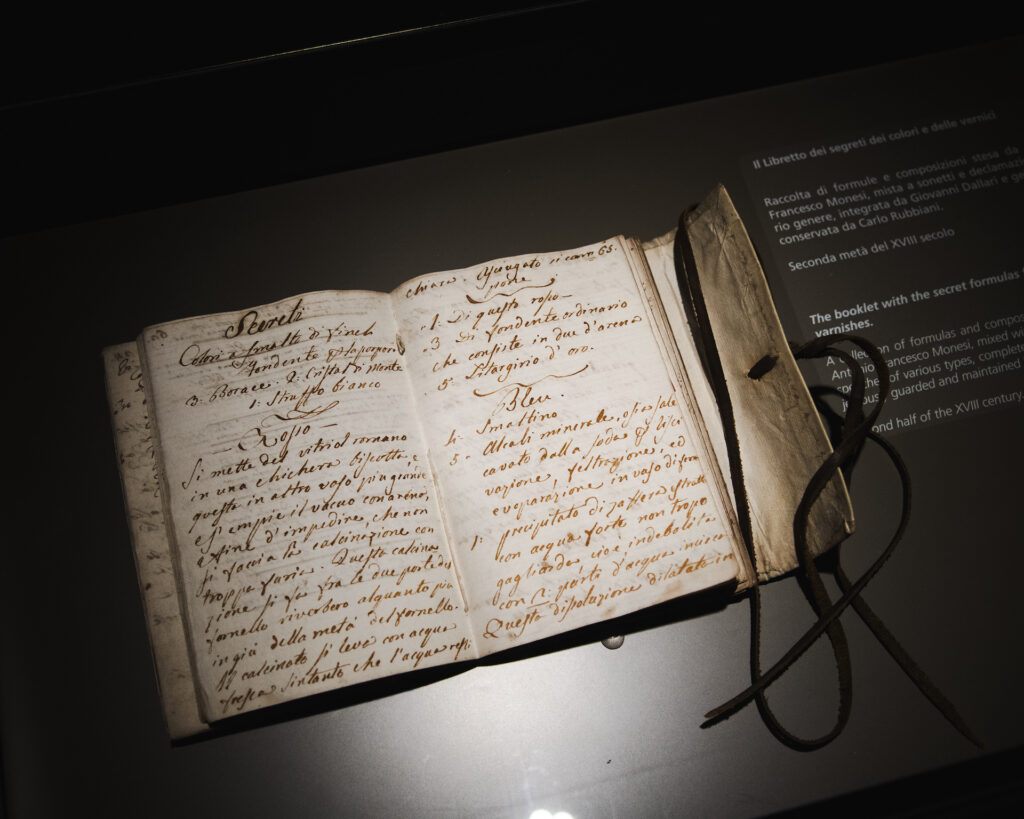 Secreti
Colori e Smalto di Finch
Fondente
3: Borace. 2. Cristal di Monte
1: Struffo bianco
Rosso
Si mette del vitriol romano
in una chichera biscotta, e
questa in altro vaso più grande
e s'empie il vacuo con arena,
affine d'impedire, che non
si faccia la calcinazione con
troppa furia. Questa calcina
zione si fa fra le due porte del
fornello riverbero alquanto più
in giù della metà del fornello.
calcinato si leva con acqua
fresca sintanto che l'acqua resti
chiara. Asciugato si cava 65.
zione
1. Di questo roso
3 Di fondente ordinario
che consiste in due d'arena
5 Litargirio d'oro.
Bleu.
4: Smaltino
5 - Alcali minerale, osia sale
cavato dalla soda
vazione, feltrazione, ed
evaporazione in vaso di ferro
1: precipitato di zaffera estratta
con acqua forte non tropo
gagliarda, cioè indebolita
con 2: parti d'acqua
Questa disoluzione dilatata in
Il Libretto dei segreti dei colori e delle vernici
Raccolta di formule e composizioni stesa da
Francesco Monesi, mista a sonetti e declamazi
rio genere, integrata da Giovanni Dallari e ge
conservata da Carlo Rubbiani.
Seconda metà del XVIII secolo
The booklet with the secret formulas
varnishes.
A collection of formulas and compos
Antonio Francesco Monesi, mixed w
speeches of various types, complete
jealously guarded and maintained
ond half of the XVIII century.